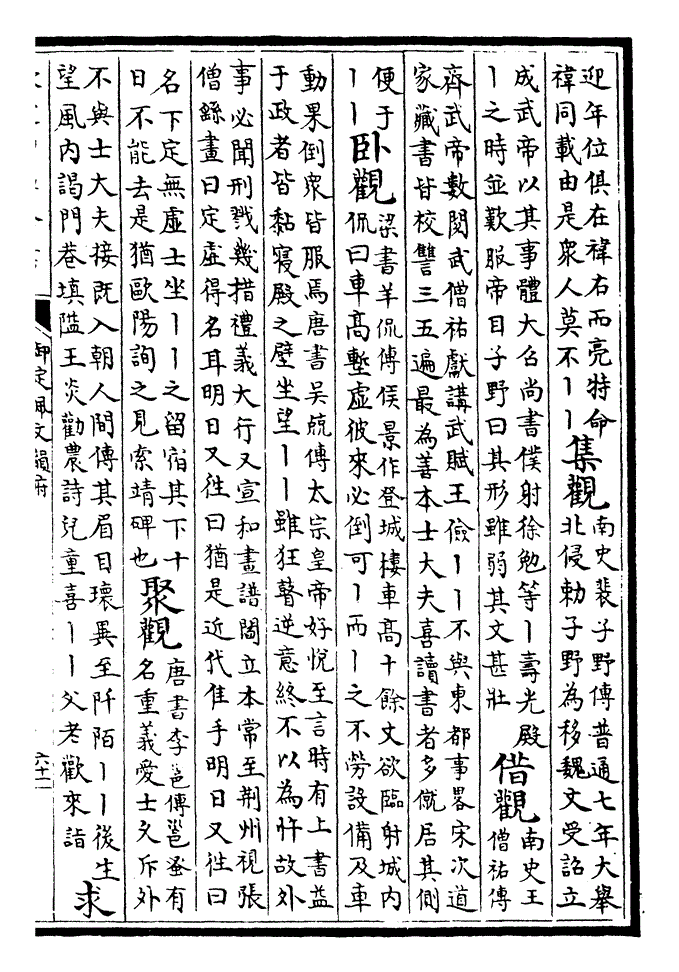 迎年位俱在禕右而亮特命
禕同載由是衆人莫不丨丨
集觀
南史裴子野傳普通七年大舉
北侵勅子野為移魏文受詔立
成武帝以其事體大召尚書僕射徐勉等丨壽光殿
丨之時並歎服帝目子野曰其形雖弱其文甚壯
借觀
南史王
僧祐傳
齊武帝數閱武僧祐獻講武賦王儉丨丨不與東都事畧宋次道
家藏書皆校讐三五遍最為善本士大夫喜讀書者多僦居其側
便于
丨丨
卧觀
梁書羊侃傳侯景作登城樓車高十餘丈欲臨射城内
侃曰車高塹虛彼來必倒可丨而丨之不勞設備及車
動果倒衆皆服焉唐書吳兢傳太宗皇帝好悅至言時有上書益
于政者皆黏寢殿之壁坐望丨丨雖狂瞽逆意終不以為忤故外
事必聞刑戮幾措禮義大行又宣和畫譜閻立本常至荆州視張
僧繇畫曰定虛得名耳明日又往曰猶是近代隹手明日又往曰
名下定無虛士坐丨丨之留宿其下十
日不能去是猶歐陽詢之見索靖碑也
聚觀
唐書李邕傳邕蚤有
名重義愛士久斥外
不與士大夫接既入朝人間傳其眉目瓌異至阡陌丨丨後生
望風内謁門巷填隘王炎勸農詩兒童喜丨丨父老歡來詣
求
御定佩文韻府
六十二